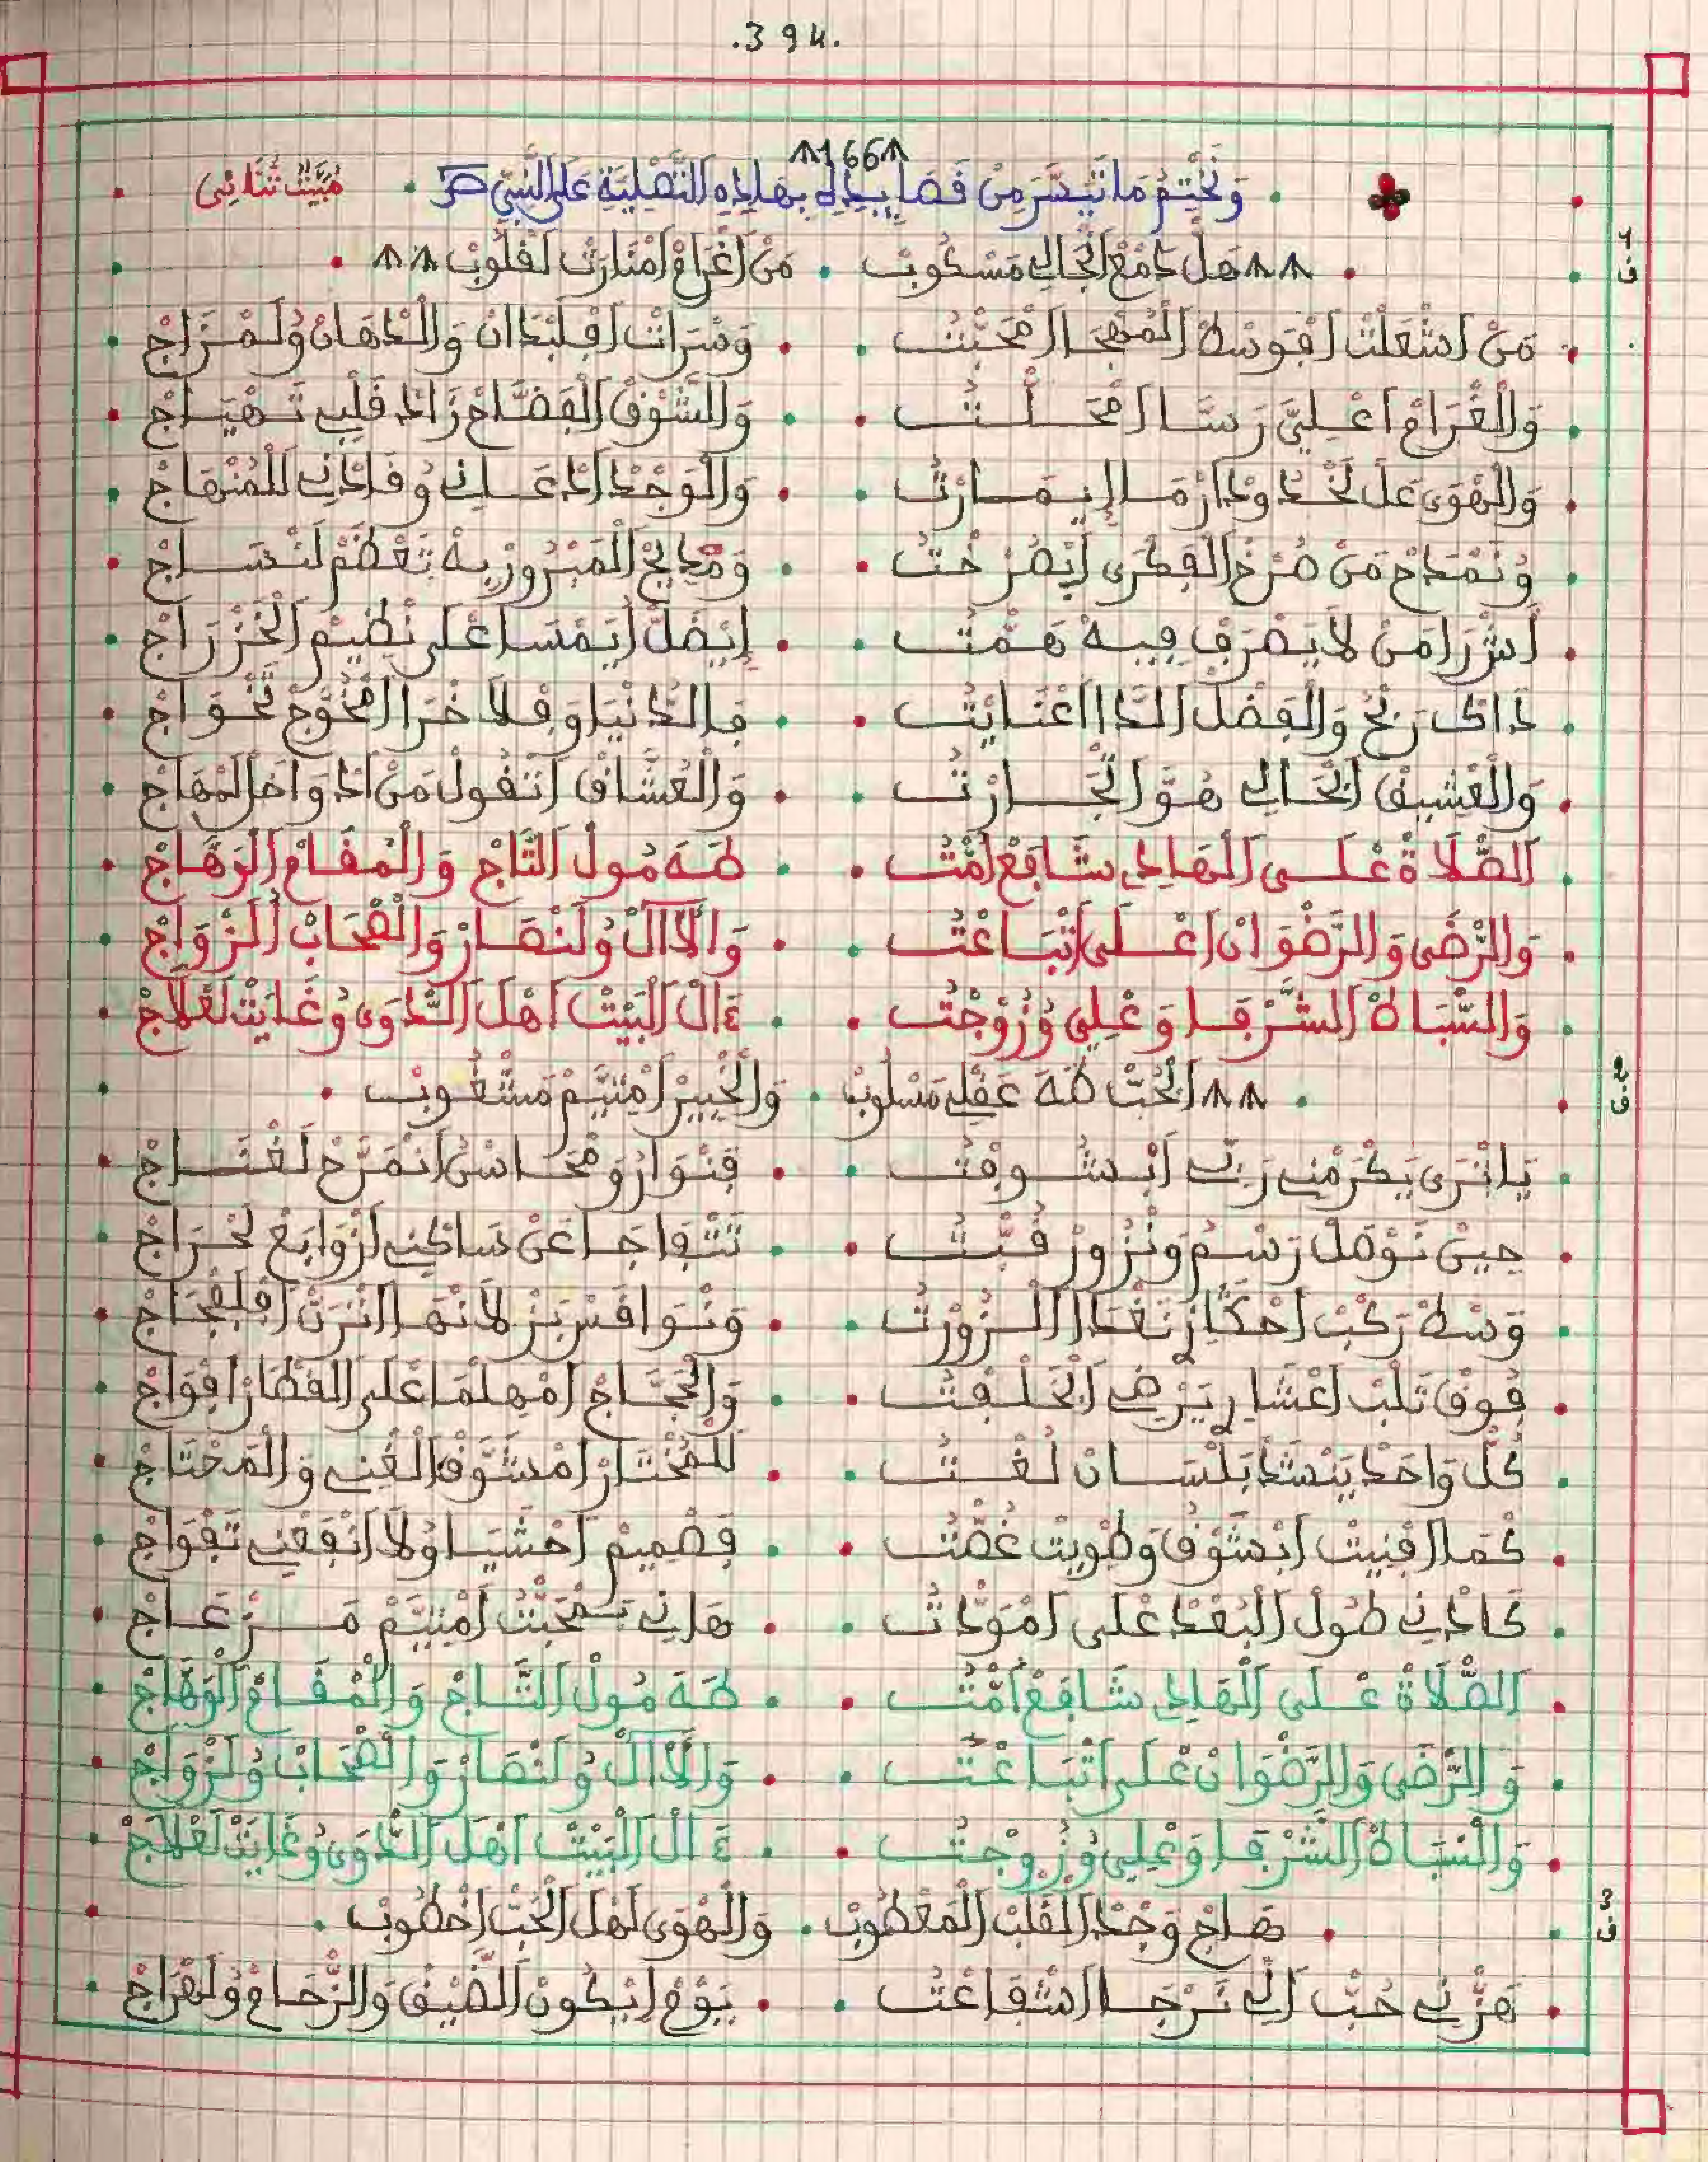 .394.
166
وَنَخْتِمُ مَا تَيَسَّرَ مِنْ قَصَايِدِي بِهَاذِهِ التَّصْلِيَةِ عَلَى النَّبِيّ صَ . مْبَيّتْ ثُنَائِي
هَلّ دَمْعْ انْجَالِي مَسْكُوبْ . مَنْ اغْرَامْ امْنَارَتْ لَقْلُوبْ
ف 1
مَنْ اشْعَلْتْ افْوَسْطْ الْمُهْجَا امْحَبّْتُ . وَسْرَاتْ افْلَبْدَانْ وَالدّْهَانْ وُلَمْزَاجْ
وَالْغْرَامْ اعْلِيَّ رَسَّا امْحَلّْتُ . وَالشُّوقْ الْفَضَّاحْ زَادْ قَلْبِي تَهْيَاجْ
وَالْهْوَى عَلْ لَخْدُودْ ارْمَا لِيمَارْتُ . وَالْوَجْدْ ادْعَانِي وُقَادْنِي لَلْمُنْهَاجْ
وُنَمْدَاحْ مَنْ صَرْخْ الْفِكْرَى ايْصَرْخْتُ . وَمْدَايَحْ الْمَبْرُورْ بِهْ تَعْظَمْ لَنْسَاجْ
اشْرَرَا مَنْ لَا يَصْرَفْ فِيهْ هَمّْتُ . إِيضَلّْ ايَمْسَا عْلَى نْظِيمْ الْخَزْرَاجْ
ذَاكْ رَبْحُ وَالْفَضْلْ الدَّا اعْنَايْتُ . فَالدَّنْيَا وَفْلَاخْرَا الْمَحْوَجْ تَحْوَاجْ
وَالْعْشِيقْ ابْحَالِي هُوَّ اتْجَارْتُ . وَالْعُشَّاقْ اتْقُولْ مَنْ ادْوَاخَلْ لَمْهَاجْ
الصّْلَاةْ عْلَى الْهَادِي شَافَعْ امّْتُ . طَهَ مُولْ التَّاجْ وَالْمْقَامْ الْوَهَّاجْ
وَالرّْضَى وَالرَّضْوَانْ اعْلَى اتْبَاعْتُ . وَالْأَالْ وُلَنْصَارْ وَالصْحَابْ الْزْوَاجْ
وَالسّْبَاطْ الشُّرْفَا وَعْلِي وُزَوْجْتُ . ءَالْ الْبَيْتْ اهْلَ الدّْوَى وُغَايْتْ لَعْلَاجْ
الْحُبّْ طَهَ عَقْلِي مَسْلُوبْ . وَالْخْبِيرْ امْتِيَّمْ مَشْغُوبْ
ف 2
يَا تْرَى يَكْرَمْنِي رَبِّي ابْشُوفْتُ . فَنْوَارُ وَمْحَاسْنُ انْمَرَّحْ لَغْنَاجْ
حِينْ نَوْصَلْ رَسْمُ وَنْزُورْ قُبّْتُ . تَتْفَاجَا عَنْ سَاكْنِي ازْوَابَعْ لَحْرَاجْ
وَسْطْ رَكْبْ احْكَّارْ نَغْدَا الْزُورْتُ . وَنْوَافَسْ بَزْلَانْهَا اتْرَنّْ افْلَفْجَاجْ
فُوقْ تَلْبْ اعْشَارِي يَرْضِي ابْخَلْفْتُ . وَالْحَجَّاجْ امْهَلْمَا عْلَى الْقْطَارْ افْوَاجْ
كُلّ وَاحَدْ يَنْشَدْ بَلْسَانْ لُغْتُ . لَلْمُخْتَارْ امْشَوَّقْ الْغْنِي وَالْمَحْتَاجْ
كَمَا افْنِيتْ ابْشَوْقُ وَطْوِيتْ غُصّْتُ . فَصْمِيمْ احْشَيَا وُلَا انْفَعْنِي تَفْوَاجْ
كَادْنِي طُولْ الْبُعْدْ عْلَى امْوَدّْتُ . هَانِي بَمْحَبّْتُ امْتِيَّمْ مَزْعَاجْ
الصّْلَاةْ عْلَى الْهَادِي شَافَعْ امّْتُ . طَهَ مُولْ التَّاجْ وَالْمْقَامْ الْوَهَّاجْ
وَالرّْضَى وَالرَّضْوَانْ عْلَى اتْبَاعْتُ . وَالْأَالْ وُلَنْصَارْ وَالصْحَابْ وُلَزْوَاجْ
وَالسّْبَاطْ الشُّرْفَا وَعْلِي وُزَوْجْتُ . ءَالْ الْبَيْتْ اهْلَ الدّْوَى وُغَايْتْ لَعْلَاجْ
هَاجْ وَجْدْ الْقَلْبْ الْمَعْطُوبْ . وَالْهْوَى لَهْلَ الْحُبّْ اخْطُوبْ
ف 3
هَزّْنِي حُبّْ الِّي نَرْجَا اشْفَاعْتُ . يَوْمْ ايْكُونْ الضِّيقْ وَالزّْحَامْ وُلَهْرَاجْ